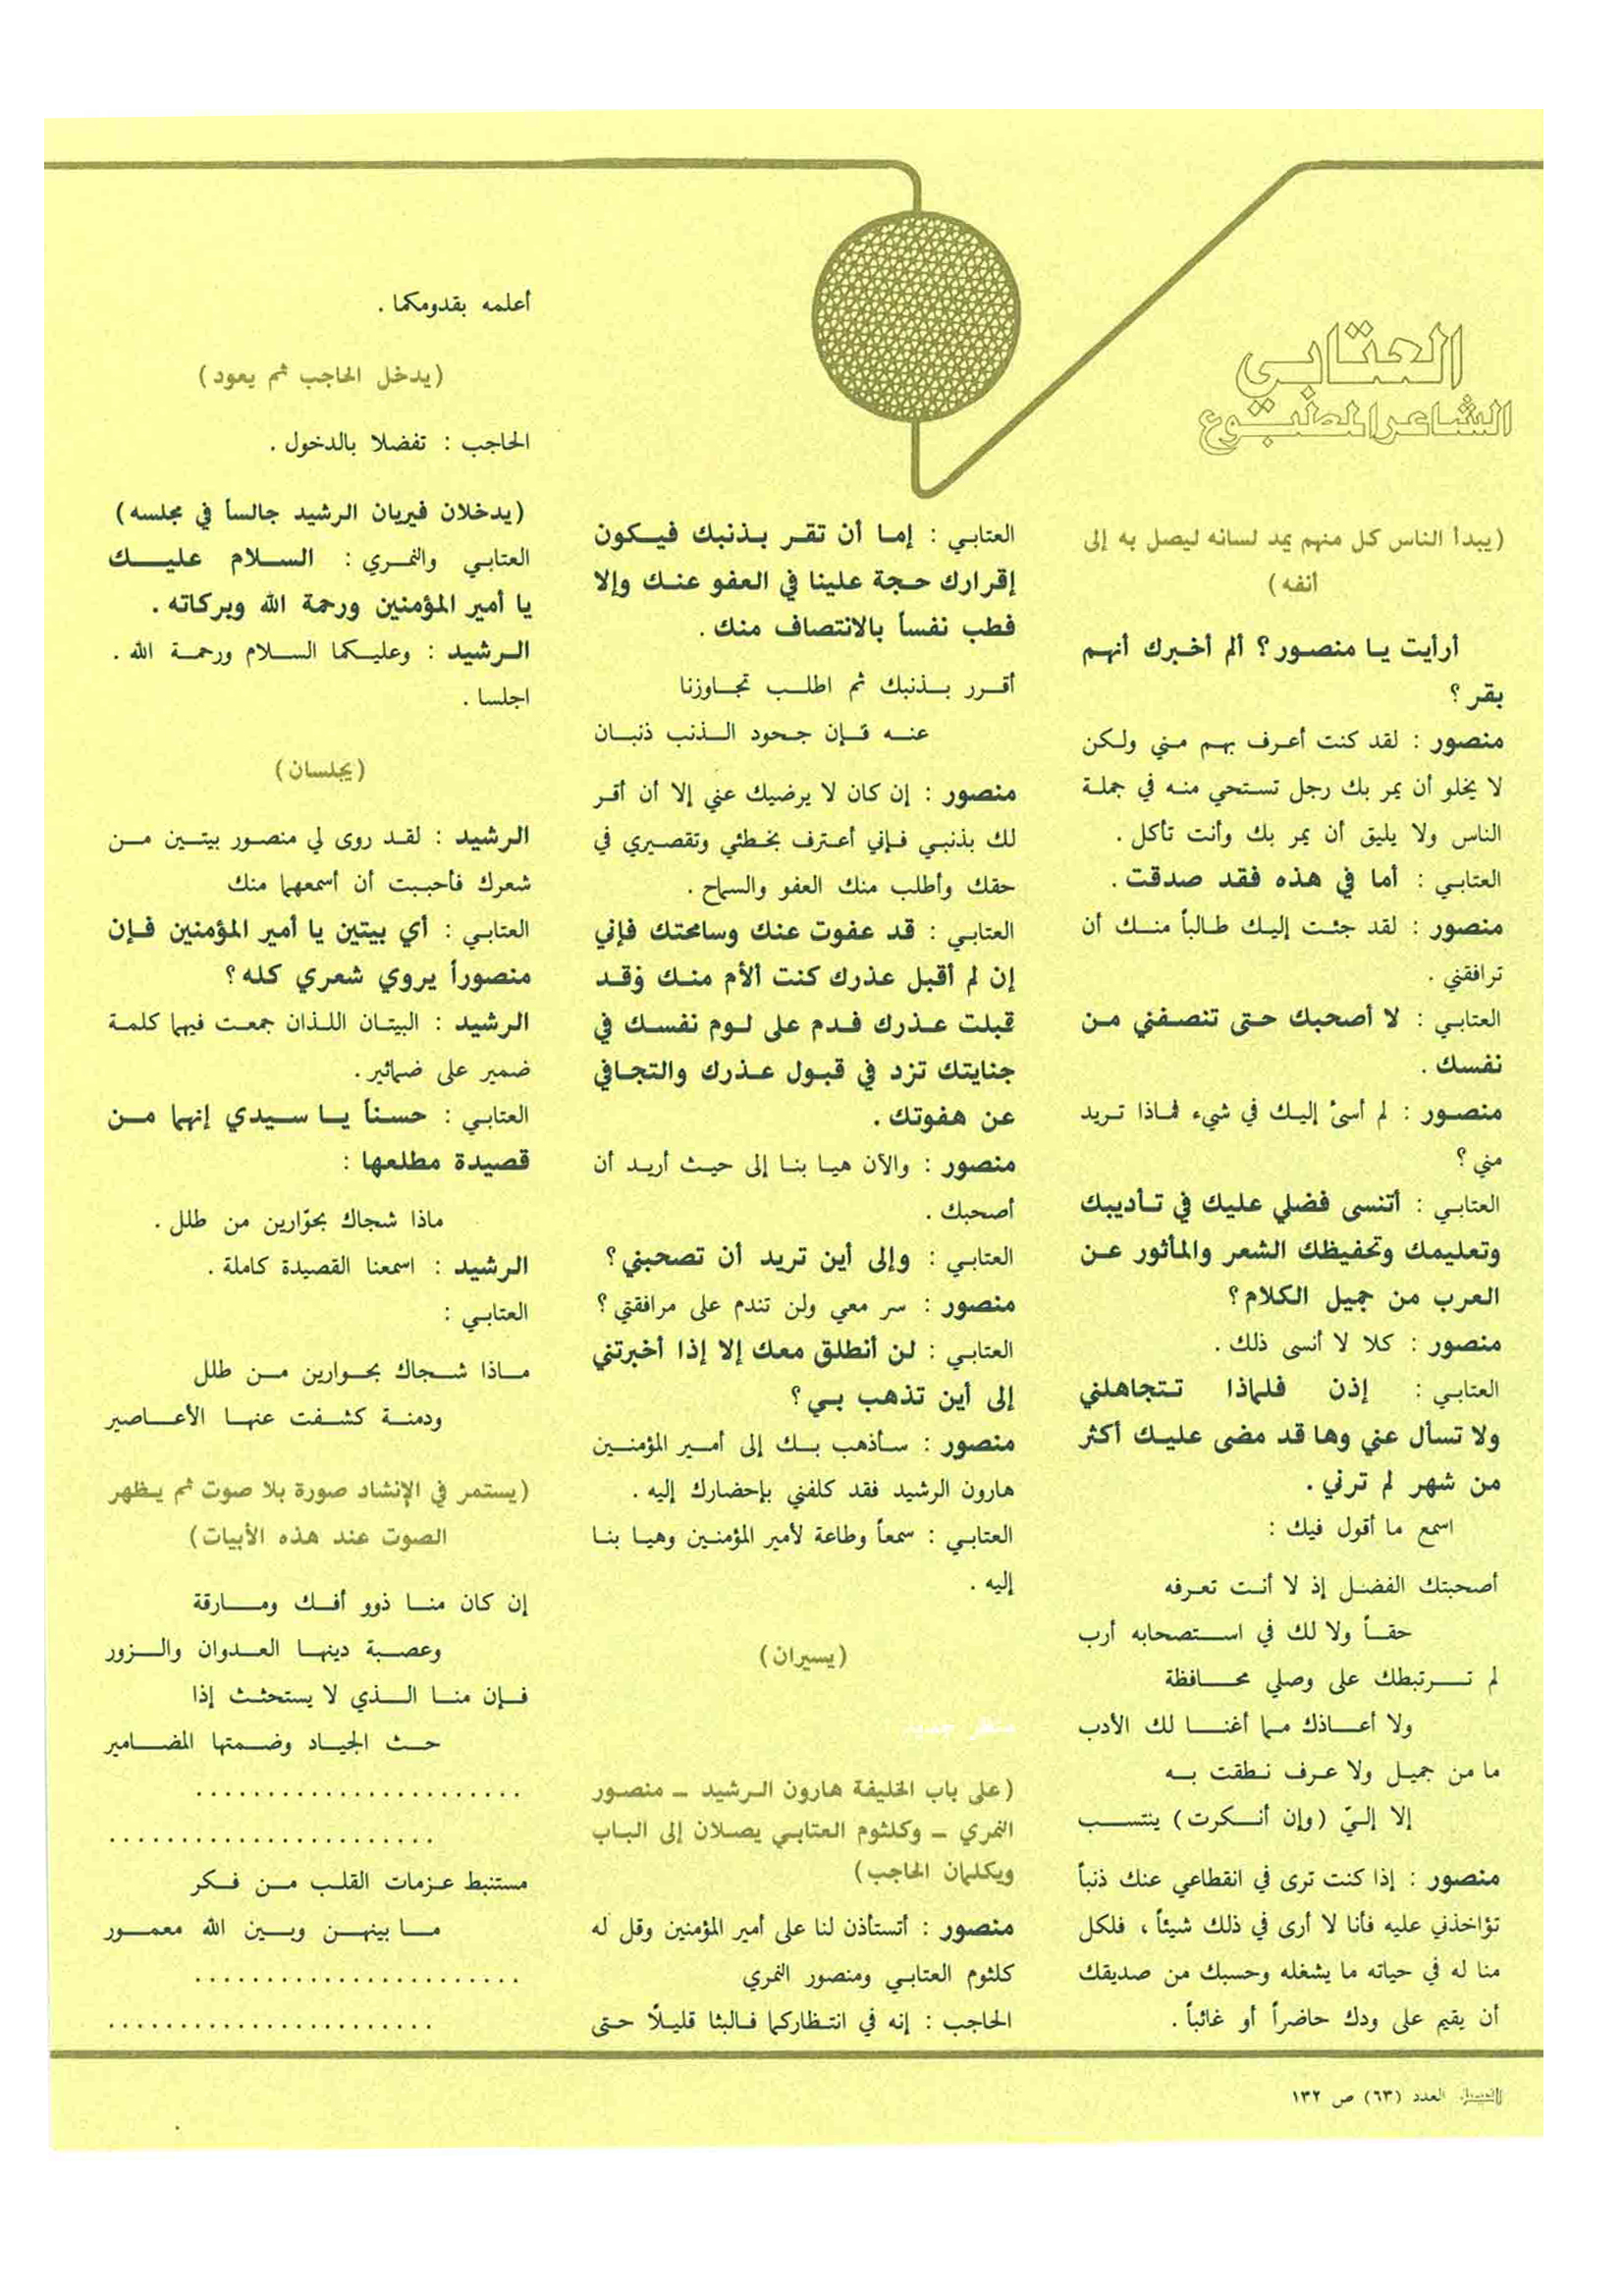 العتابي
الشاعر المطبوع
(يبدأ الناس كل منهم يمد لسانه ليصل به إلى
أنفه)
أرأيت يا منصور؟ ألم أخبرك أنهم
بقر؟
منصور : لقد كنت أعرف بهم مني ولكن
لا يخلو أن يمر بك رجل تستحي منه في جملة
الناس ولا يليق أن يمر بك وأنت تأكل .
العتابي : أما في هذه فقد صدقت .
منصور : لقد جئت إليك طالباً منك أن
ترافقني .
العتابي : لا أصحبك حتى تنصفني من
نفسك .
منصور : لم أسئ إليك في شيء فماذا تريد
مني ؟
العتابي : أتنسى فضلي عليك في تأديبك
وتعليمك وتحفيظك الشعر والمأثور عن
العرب من جميل الكلام؟
منصور : كلا لا أنسى ذلك .
العتابي : إذن فلماذا تتجاهلني
ولا تسأل عني وها قد مضى عليك أكثر
من شهر لم ترني .
اسمع ما أقول فيك :
أصحبتك الفضل إذ لا أنت تعرفه
حقاً ولا لك في استصحابه أرب
لم ترتبطك على وصلي محافظة
ولا أعاذك مما أغنا لك الأدب
ما من جميل ولا عرف نطقت به
إلا إليّ (وإن أنكرت) ينتسب
منصور : إذا كنت ترى في انقطاعي عنك ذنباً
تؤاخذني عليه فأنا لا أرى في ذلك شيئاً ، فلكل
منا له في حياته ما يشغله وحسبك من صديقك
أن يقيم على ودك حاضراً أو غائباً .
العتابي : إما أن تقر بذنبك فيكون
إقرارك حجة علينا في العفو عنك وإلا
فطب نفساً بالانتصاف منك .
أقرر بذنبك ثم اطلب تجاوزنا
عنه فإن جحود الذنب ذنبان
منصور : إن كان لا يرضيك عني إلا أن أقر
لك بذنبي فإني أعترف بخطئي وتقصيري في
حقك وأطلب منك العفو والسماح .
العتابي : قد عفوت عنك وسامحتك فإني
إن لم أقبل عذرك كنت ألأم منك وقد
قبلت عذرك فدم على لوم نفسك في
جنايتك تزد في قبول عذرك والتجافي
عن هفوتك .
منصور : والآن هيا بنا إلى حيث أريد أن
أصحبك .
العتابي : وإلى أين تريد أن تصحبني؟
منصور : سر معي ولن تندم على مرافقتي؟
العتابي : لن أنطلق معك إلا إذا أخبرتني
إلى أين تذهب بي؟
منصور : سأذهب بك إلى أمير المؤمنين
هارون الرشيد فقد كلفني بإحضارك إليه .
العتابي : سمعاً وطاعة لأمير المؤمنين وهيا بنا
إليه .
(يسيران)
منظر جديد
(على باب الخليفة هارون الرشيد ــ منصور
النمري ــ وكلثوم العتابي يصلان إلى الباب
ويكلمان الحاجب)
منصور : أتستأذن لنا على أمير المؤمنين وقل له
كلثوم العتابي ومنصور النمري
الحاجب : إنه في انتظاركما فالبثا قليلاً حتى
أعلمه بقدومكما .
(يدخل الحاجب ثم يعود)
الحاجب : تفضلا بالدخول .
(يدخلان فيريان الرشيد جالساً في مجلسه)
العتابي والنمري : السلام عليك
يا أمير المؤمنين ورحمة الله وبركاته .
الرشيد : وعليكما السلام ورحمة الله .
اجلسا .
(يجلسان)
الرشيد : لقد روى لي منصور بيتين من
شعرك فأحببت أن أسمعهما منك
العتابي : أي بيتين يا أمير المؤمنين فإن
منصوراً يروي شعري كله؟
الرشيد : البيتان اللذان جمعت فيهما كلمة
ضمير على ضمائير .
العتابي : حسناً يا سيدي إنهما من
قصيدة مطلعها :
ماذا شجاك بحوّارين من طلل .
الرشيد : اسمعنا القصيدة كاملة .
العتابي :
ماذا شجاك بحوارين من طلل
ودمنة كشفت عنها الأعاصير
(يستمر في الإنشاد صورة بلا صوت ثم يظهر
الصوت عند هذه الأبيات)
إن كان منا ذوو أفك ومارقة
وعصبة دينها العدوان والزور
فإن منا الذي لا يستحثث إذا
حث الجياد وضمتها المضامير
.......................
.......................
مستنبط عزمات القلب من فكر
ما بينهن وبين الله معمور
.......................
.......................
الفيصل العدد (٦٣) ص ١٣٢